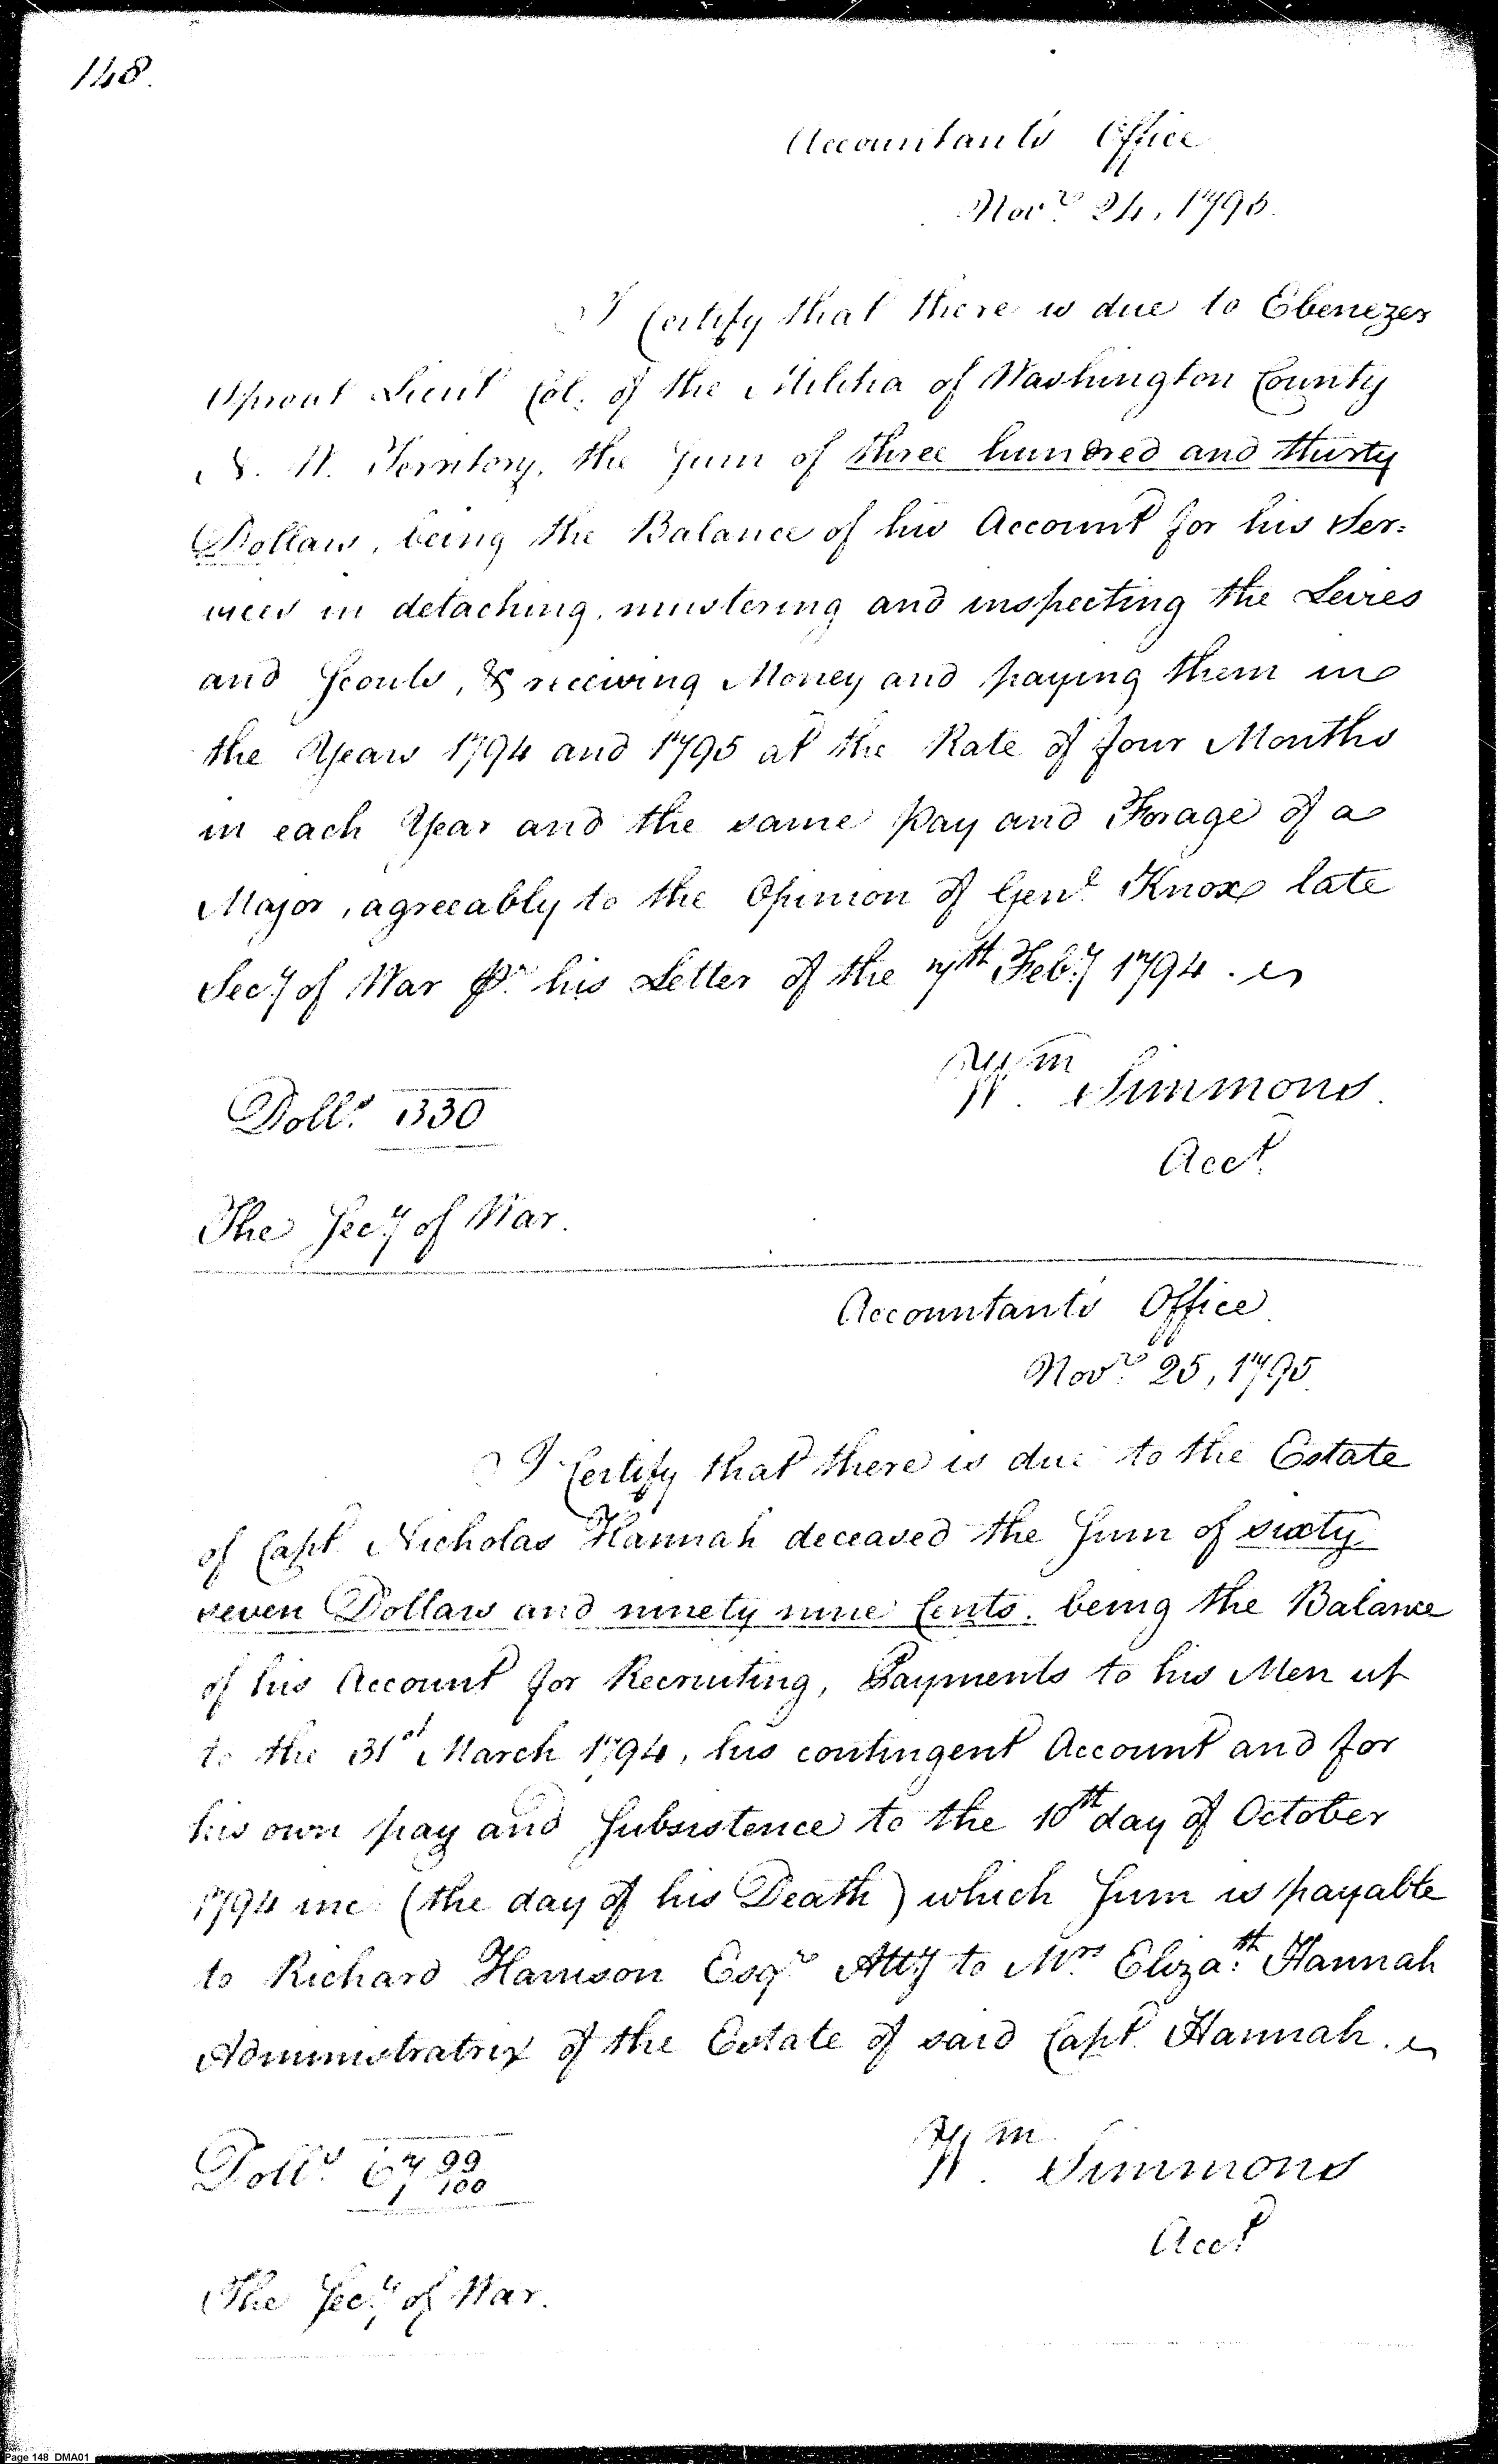 148.
Accountants Office
Novr. 24, 1795.
I Certify that there is due to Ebenezer
Sproat Lieut Col. of the Militia of Washington County
N. W. Territory, the Sum of three hundred and thirty
Dollars, being the Balance of his Account for his Ser=
vices in detaching, mustering and inspecting the Levies
and Scouts, & receiving Money and paying them in
the Years 1794 and 1795 at the Rate of four Months
in each Year and the same pay and Forage of a
Major, agreeably to the Opinion of Genl. Knox late
Secy. of War pr. his Letter of the 7th Feby. 1794.
Wm. Simmons.
Acct.
Dolls. 330
The Secy. of War.
Accountants Office.
Novr. 25, 1795.
I Certify that there is due to the Estate
of Capt Nicholas Hannah deceased the Sum of sixty
seven Dollars and ninety nine Cents. being the Balance
of his Account for Recruiting, Payments to his Men up
to the 31st March 1794, his contingent Account and for
his own pay and Subsistence to the 10th day of October
1794 inc. (the day of his Death) which Sum is payable
to Richard Harrison Esqr. Atty to Mrs. Elizath. Hannah
Administratrix of the Estate of said Capt. Hannah.
Wm. Simmons
Acct.
Dolls. 67 99/100
The Secy. of War.
Page 148 DMA01